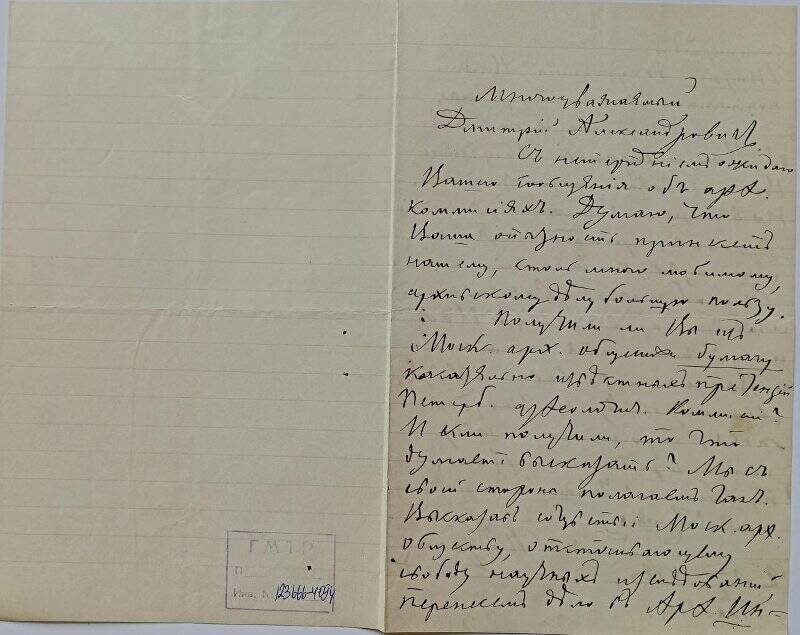 Многоуважаемый
Дмитрій Александровичъ,
съ нетерпѣніемъ ожидаю
Вашего сообщенія объ арх.
коммисіяхъ. Думаю, что
Ваша отзывность принесетъ
нашему, столь много любимому,
архивскому дѣлу большую пользу.
Получили ли Вы изъ
Моск. арх. общества бумагу
касательно извѣстныхъ претензій
Петерб. археологич. Коммисіи?
И если получили, то что
думаете высказать? Мы съ
своей стороны полагаемъ такъ.
Высказавъ сочувствіе Моск. арх.
обществу, отстаивающему
свободу научныхъ изслѣдованій
перенесемъ дѣло въ Арх. Ин-
ГМТР
П
Инв. №123666-4194